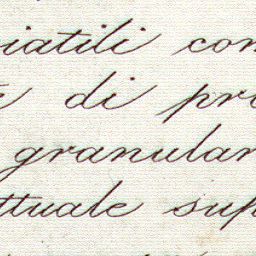 iatili con
di pri
granular
ttuale sup